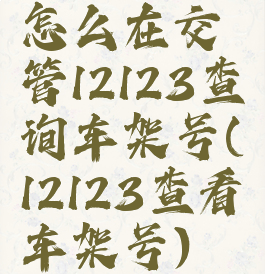 怎么在交
管12123查
询车架号(
12123查看
车架号)